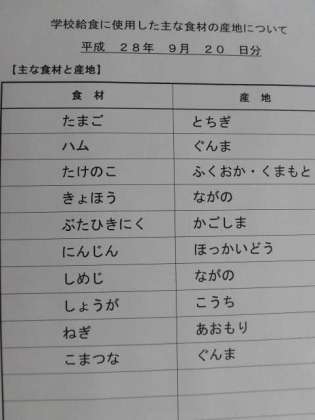 学校給食に使用した主な食材の産地について
平成 28年 9月 20 日分
【主な食材と産地】
食材 産地
たまご とちぎ
ハム ぐんま
たけのこ ふくおか・くまもと
きょほう ながの
ぶたひきにく かごしま
にんじん ほっかいどう
しめじ ながの
しょうが こうち
ねぎ あおもり
こまつな ぐんま